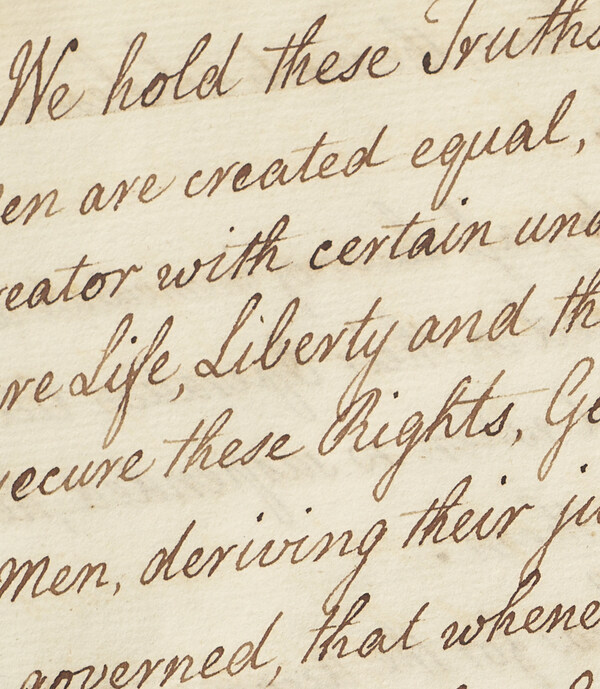 We hold these Truths
en are created equal,
reator with certain una
re Life, Liberty and th
ecure these Rights, Go
men, deriving their ju
governed, that whene